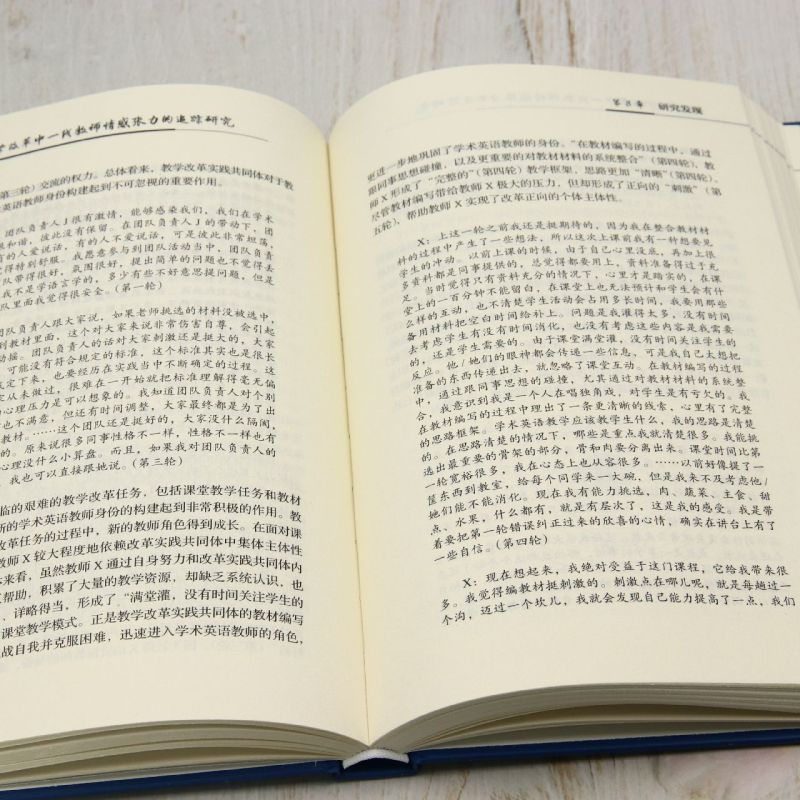 学改革中一线教师情感张力的追踪研究
第三轮）交流的权力。总体看来，教学改革实践共同体对于教
英语教师身份构建起到不可忽视的重要作用。
团队负责人J很有激情，能够感染我们，我们在学术
和谐，彼此没有保留。在团队负责人J的带动下，团
有的人爱说话，有的人不爱说话，可是彼此非常坦荡，
觉得特别舒服。我愿意参与到团队活动当中，团队负责
队带得很好，氛围很好，提出简单的问题也不觉得丢
我不是学语言学的，多少有些不好意思提问题，但是
队里面我觉得很安全。（第一轮）
团队负责人跟大家说，如果老师挑选的材料没被选中，
到教材里面，这个对大家来说非常伤害自尊，会引起
动摇。团队负责人的话对大家刺激还是挺大的，大家
，可能没有符合规定的标准，这个标准其实也是很长
定下来，也要经历在实践当中不断确定的过程。这
定从未做过，很难在一开始就把标准理解得毫无偏
心理压力是可以想象的。我知道团队负责人对个别
也不满意，但还有时间调整，大家最终都是为了出
教材。……这个团队还是挺好的，大家没什么隔阂，
的。原来说很多同事性格不一样，性格不一样也有
心理没什么小算盘。而且，如果我对团队负责人的
，我也可以直接跟她说。（第三轮）
临的艰难的教学改革任务，包括课堂教学任务和教材
新的学术英语教师身份的构建起到非常积极的作用。教
改革任务的过程中，新的教师角色得到成长。在面对课
教师X较大程度地依赖改革实践共同体中集体主体性
体来看，虽然教师X通过自身努力和改革实践共同体内
帮助，积累了大量的教学资源，却缺乏系统认识，也
、详略得当，形成了“满堂灌，没有时间关注学生的
课堂教学模式。正是教学改革实践共同体的教材编写
战自我并克服困难，迅速进入学术英语教师的角色，
第8章 研究发现
更进一步地巩固了学术英语教师的身份。“在教材编写的过程中，通过
跟同事思想碰撞，以及更重要的对教材材料的系统整合”（第四轮），教
师X形成了“完整的”（第四轮）教学框架，思路更加“清晰”（第四轮）。
尽管教材编写带给教师X极大的压力，但却形成了正向的“刺激”（第
五轮），帮助教师X实现了改革正向的个体主体性。
X：上这一轮之前我还是挺期待的，因为我在整合教材材
料的过程中产生了一些想法，所以这次上课前我有一种想要见
学生的冲动。以前上课的时候，由于自己心里没底，再加上很
多资料都是同事提供的，总觉得都要用上，资料准备得过于充
足。当时觉得只有资料充分的情况下，心里才是踏实的，在课
堂上的一百分钟不能留白，在课堂上也无法预计和学生会有什
么样的互动，也不清楚学生活动会占用多长时间，我要用那些
备用材料把空白时间给补上。问题是我灌得太多，没有时间
去考虑学生有没有时间消化，也没有考虑这些内容是我需要
的，还是学生需要的。由于课堂满堂灌，没有时间关注学生的
反应。他/她们的眼神都会传递一些信息，可是我自己太想把
准备的东西传递出去，就忽略了课堂互动。在教材编写的过程
中，通过跟同事思想的碰撞，尤其通过对教材材料的系统整
合，我意识到我是一个人在唱独角戏，对学生是有亏欠的。我
在教材编写的过程中理出了一条更清晰的线索，心里有了完整
的思路框架。学术英语教学应该教学生什么，我的思路是清楚
的。在思路清楚的情况下，哪些是重点我就清楚很多。我能挑
选出最重要的骨架的部分，骨和肉要分离出来。课堂时间比第
一轮宽裕很多，我在心态上也从容很多。……以前好像提了一
筐东西到教室，给每个同学来一大碗，但是我来不及考虑他/
她们能不能消化。现在我有能力挑选，肉、蔬菜、主食、甜
点、水果，什么都有，就是有层次了，这是我的感受。我是带
着要把第一轮错误纠正过来的欣喜的心情，确实在讲台上有了
一些自信。（第四轮）
X：现在想起来，我绝对受益于这门课程，它给我带来很
多。我觉得编教材挺刺激的。刺激点在哪儿呢，就是每趟过一
个沟，迈过一个坎儿，我就会发现自己能力提高了一点，我们